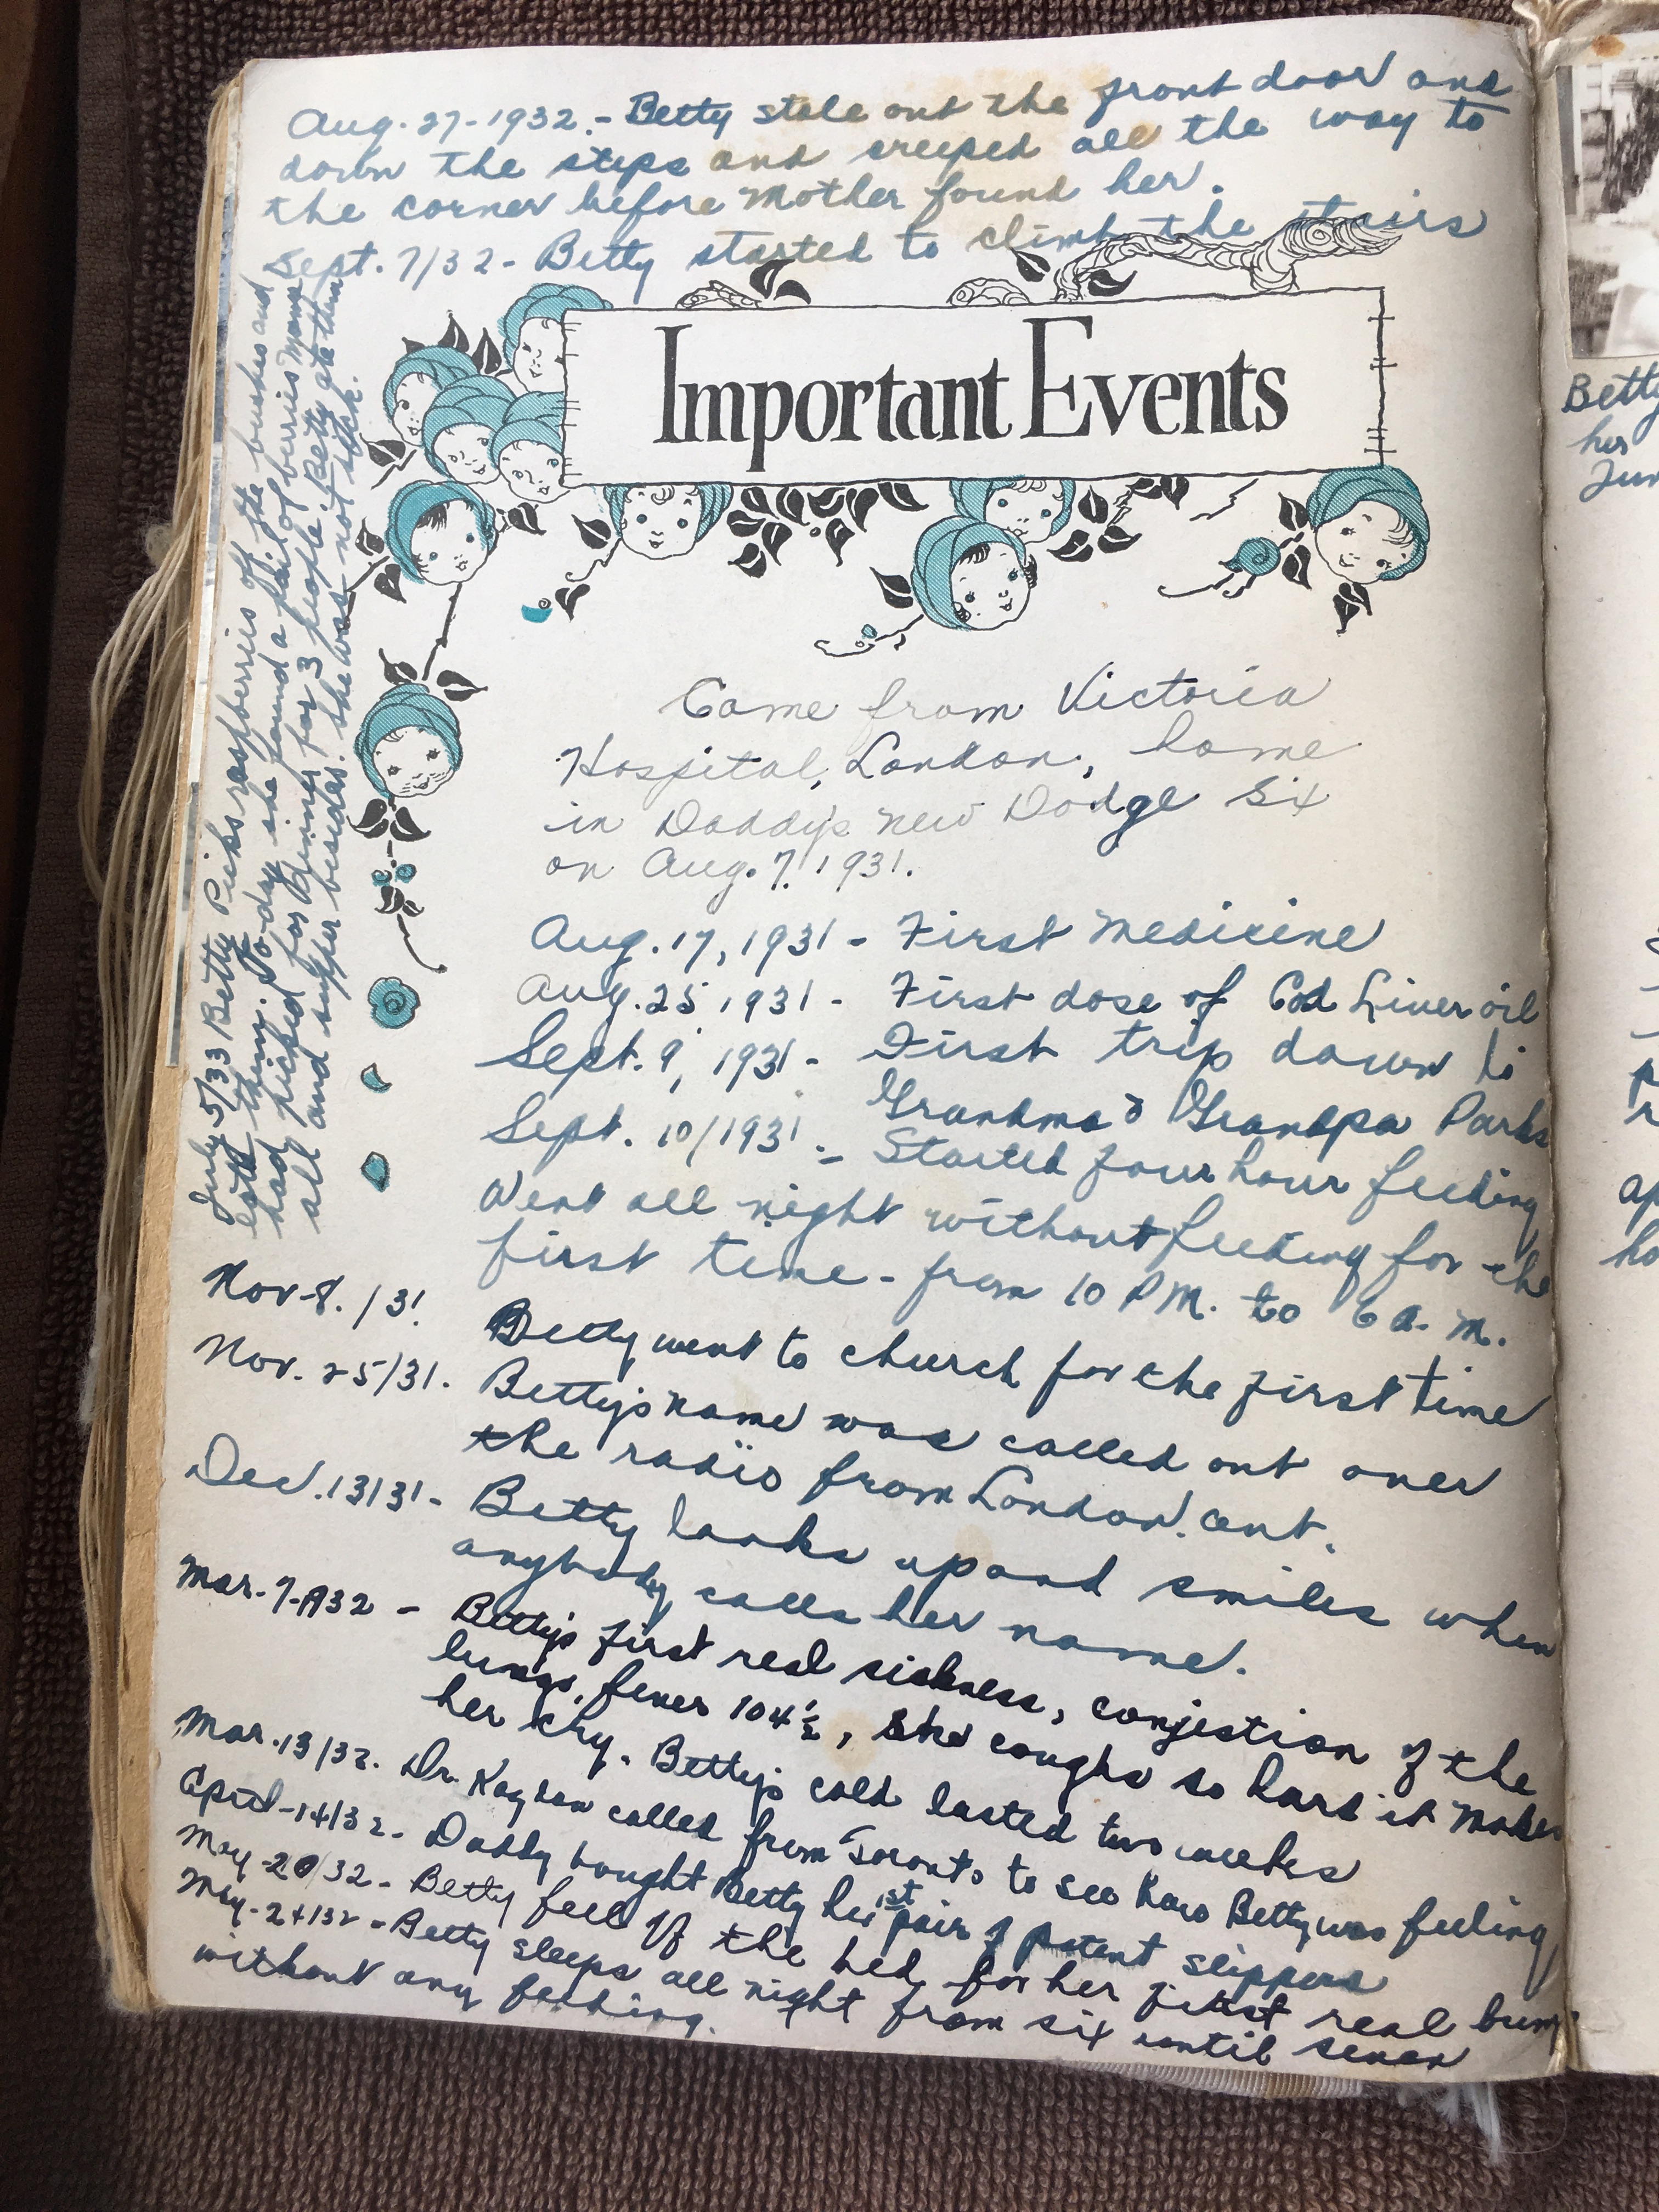 Aug. 27 - 1932. - Betty stole out the front door and
down the steps and creeped all the way to
the corner before Mother found her.
Sept. 7/32 - Betty started to climb the stairs
Important Events
Came from Victoria
Hospital, London, home
in Daddy's new Dodge Six
on Aug. 7, 1931.
Aug. 17, 1931 - First Medicine
Aug. 25, 1931 - First dose of Cod Liver oil
Sept. 9, 1931 - First trip down to
Grandma & Grandpa Parks
Sept. 10/1931. - Started four hour feeding
Went all night without feeding for the
first time - from 10 P.M. to 6 a.m.
Nov-8./31 Betty went to church for the first time
Nov. 25/31. Betty's name was called out over
the radio from London. Ont.
Dec. 13/31 - Betty looks up and smiles when
anybody calls her name.
Mar. 7-1932 - Betty's first real sickness, conjestion of the
lungs, fever 104½, she coughs so hard it makes
her cry. Betty's cold lasted two weeks
Mar. 13/32. Dr. called from Toronto to see how Betty was feeling
April-14/32 - Daddy bought Betty her 1st pair of patent slippers
May-20/32 - Betty fell off the bed for her first real bump
May-24/32 - Betty sleeps all night from six until seven
without any feeding.
July 5/33 Betty Picks raspberries off the bushes and
eats them. To-day she found a pail of berries Mama
had picked for Dinner for 3 people. Betty ate them
all and supper besides. She was not sick.
Betty
her
Jun